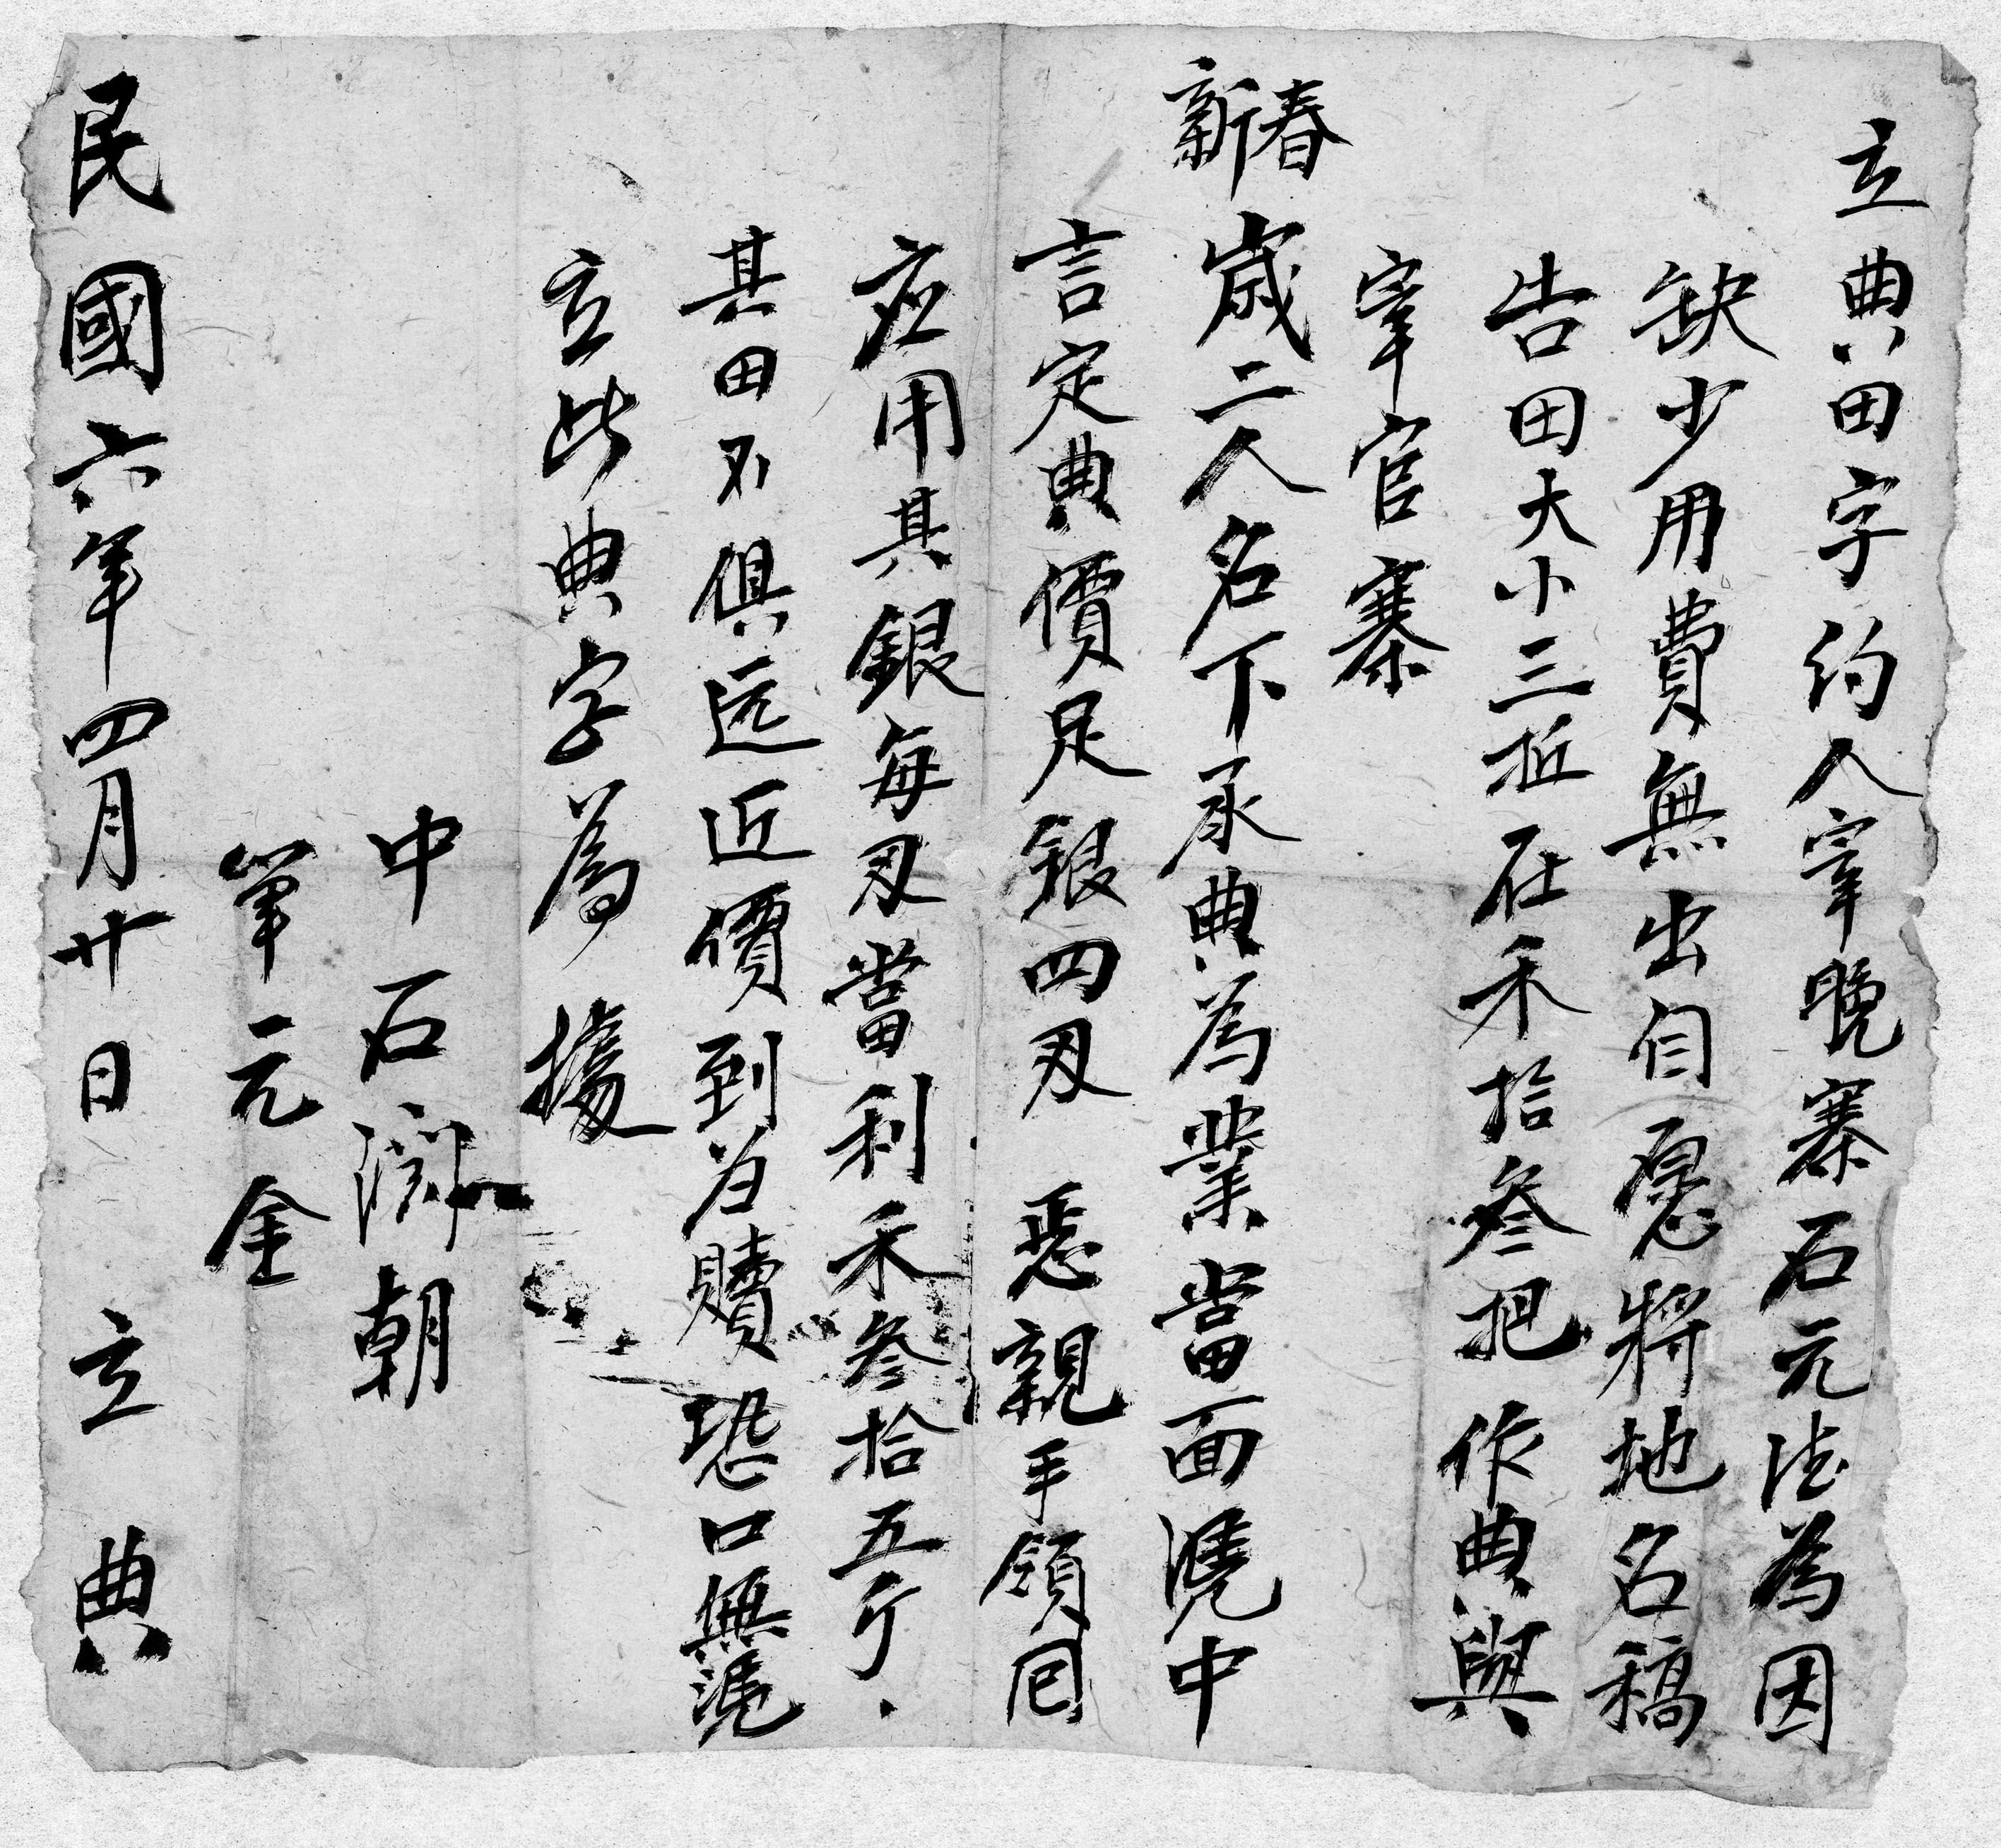 立典田字約人宰晚寨石元法為因
缺少用費無出自愿將地名稿
告田大小三坵在禾拾叁把作典與
宰官寨
新春
歲二人名下承典為業當面憑中
言定典價足銀四刄 恶親手領囘
应用其銀每刄當利禾叁拾五斤
其田不俱远近價到为贖恐口無憑
立此典字為據
中 石 朝
筆 元金
民國六年四月廿日 立 典